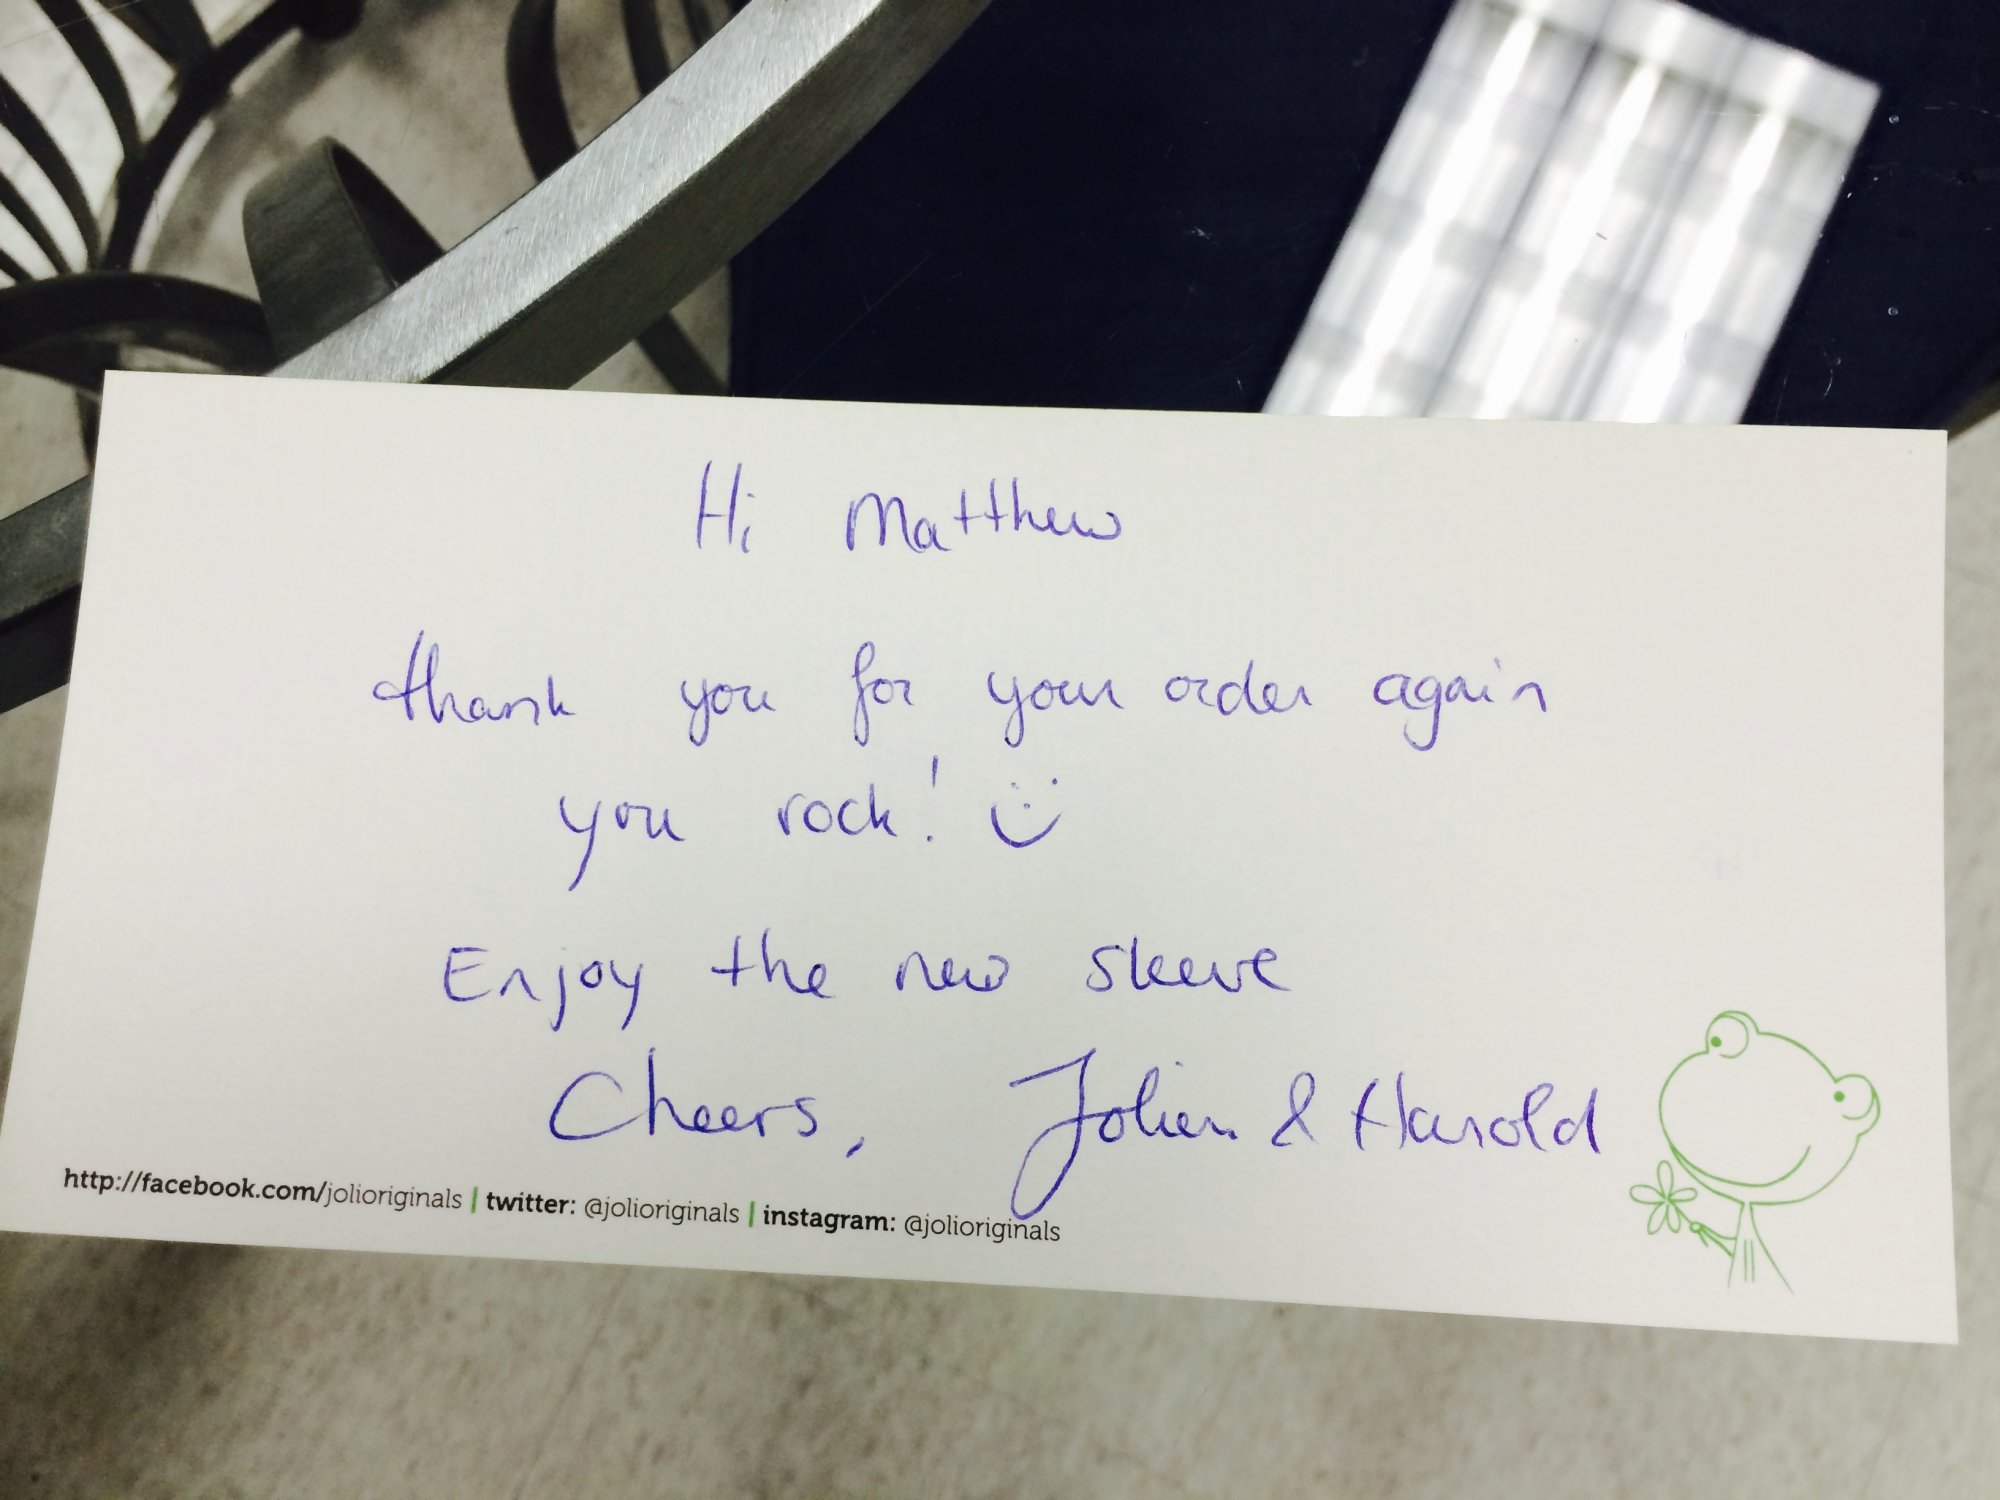 Hi Matthew
thank you for your order again
you rock! :)
Enjoy the new sleeve
Cheers, Jolien & Harold
http://facebook.com/jolioriginals | twitter: @jolioriginals | instagram: @jolioriginals